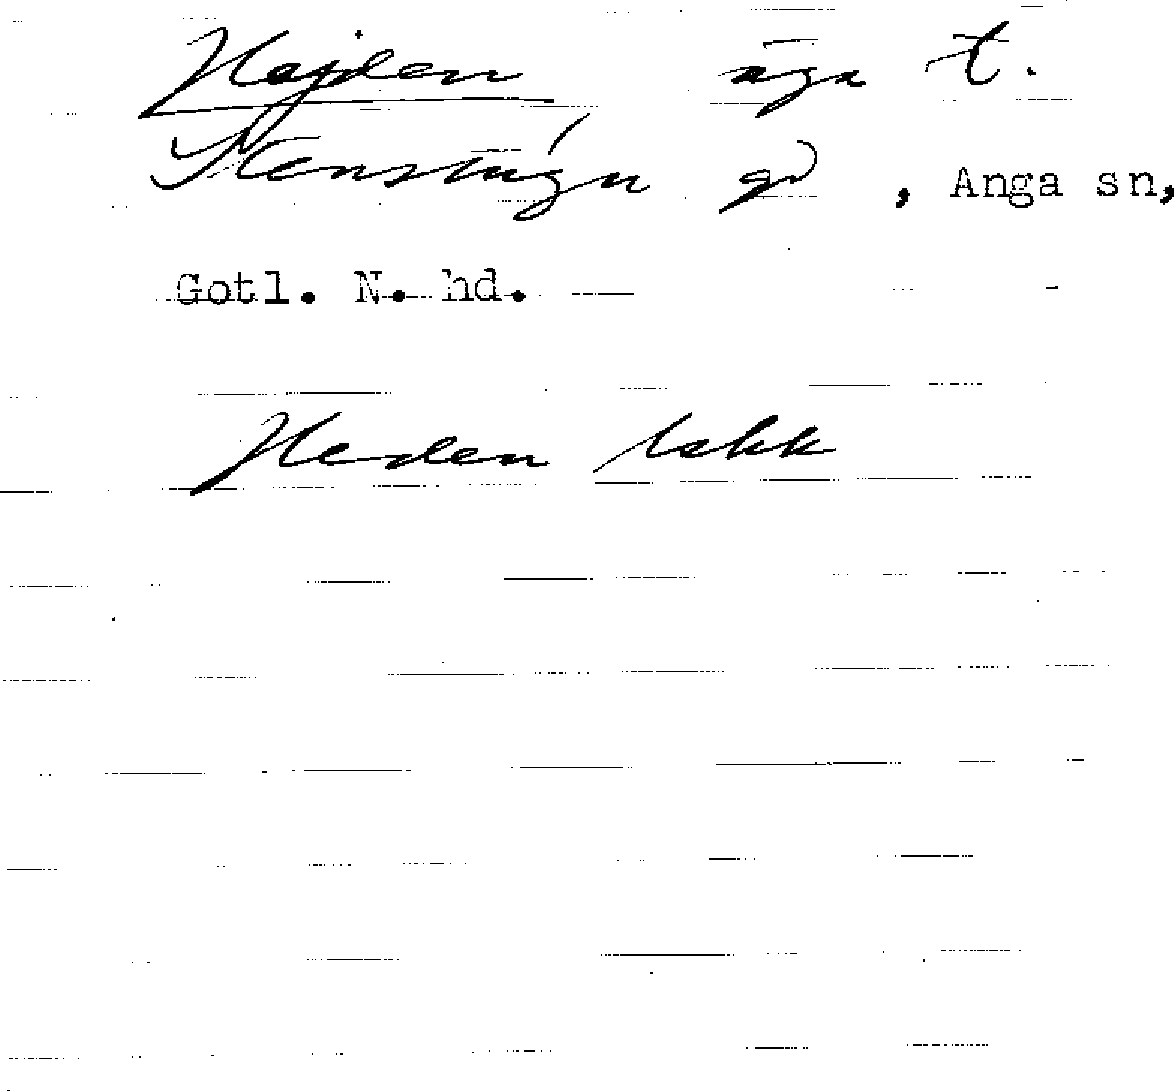 Hajden äga t.
Stenstugu gd, Anga sn,
Gotl. N. hd.
Heden lskk